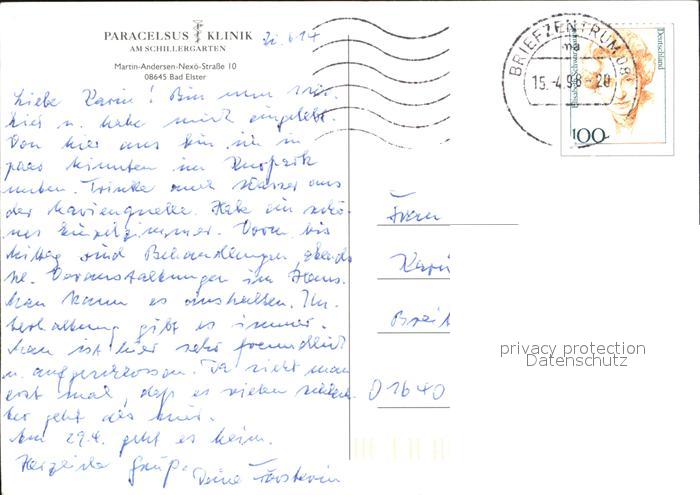 PARACELSUS KLINIK
AM SCHILLERGARTEN
Martin-Andersen-Nexö-Straße 10
08645 Bad Elster
Zi. 614
Liebe Karin! Bin nun
hier u. habe mich eingelebt.
Von hier aus bin ich in
paar Minuten im Kurpark
unten. Trinke auch Wasser aus
der Marienquelle. Habe ein schö-
nes Einzelzimmer. Vorm. bis
Mittag sind Behandlungen, abends
Veranstaltungen im Haus.
Man kann es aushalten. Un-
terhaltung gibt es immer.
Man ist hier sehr freundlich
u. aufgeschlossen. Da sieht man
erst mal, daß es vielen schlech-
ter geht als mir.
Am 29.4. geht es heim.
Herzliche Grüße Deine
BRIEFZENTRUM 08
ma
15.-4.98-20
Deutschland
100
Frau
Karin
Breit
01640
privacy protection
Datenschutz